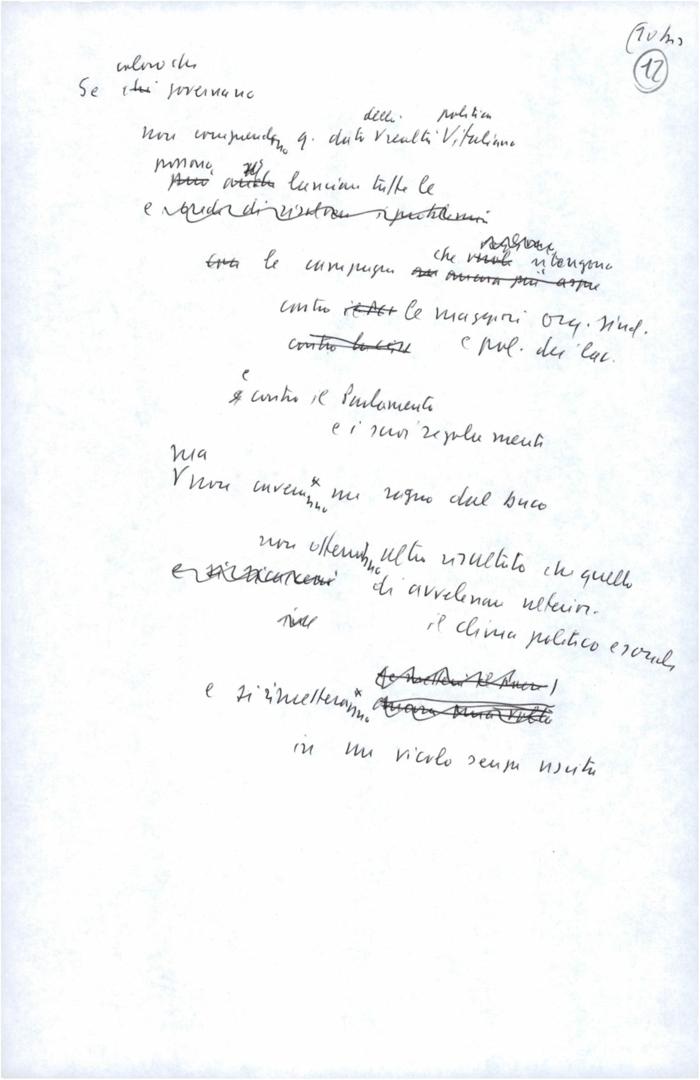 12
coloro che
Se chi governano
della politica
non comprendono q. dato realtà italiana
possono
può lanciare tutte le
e
le campagne che ritengono
ancora più aspre
contro le maggiori org. sind.
e pol. dei lav.
e contro il Parlamento
e i suoi regolamenti
ma
non caveranno un ragno dal buco
non otterranno altro risultato che quello
di avvelenare ulterior.
il clima politico e sociale
e si rimetteranno
ancora una volta
in un vicolo senza uscita